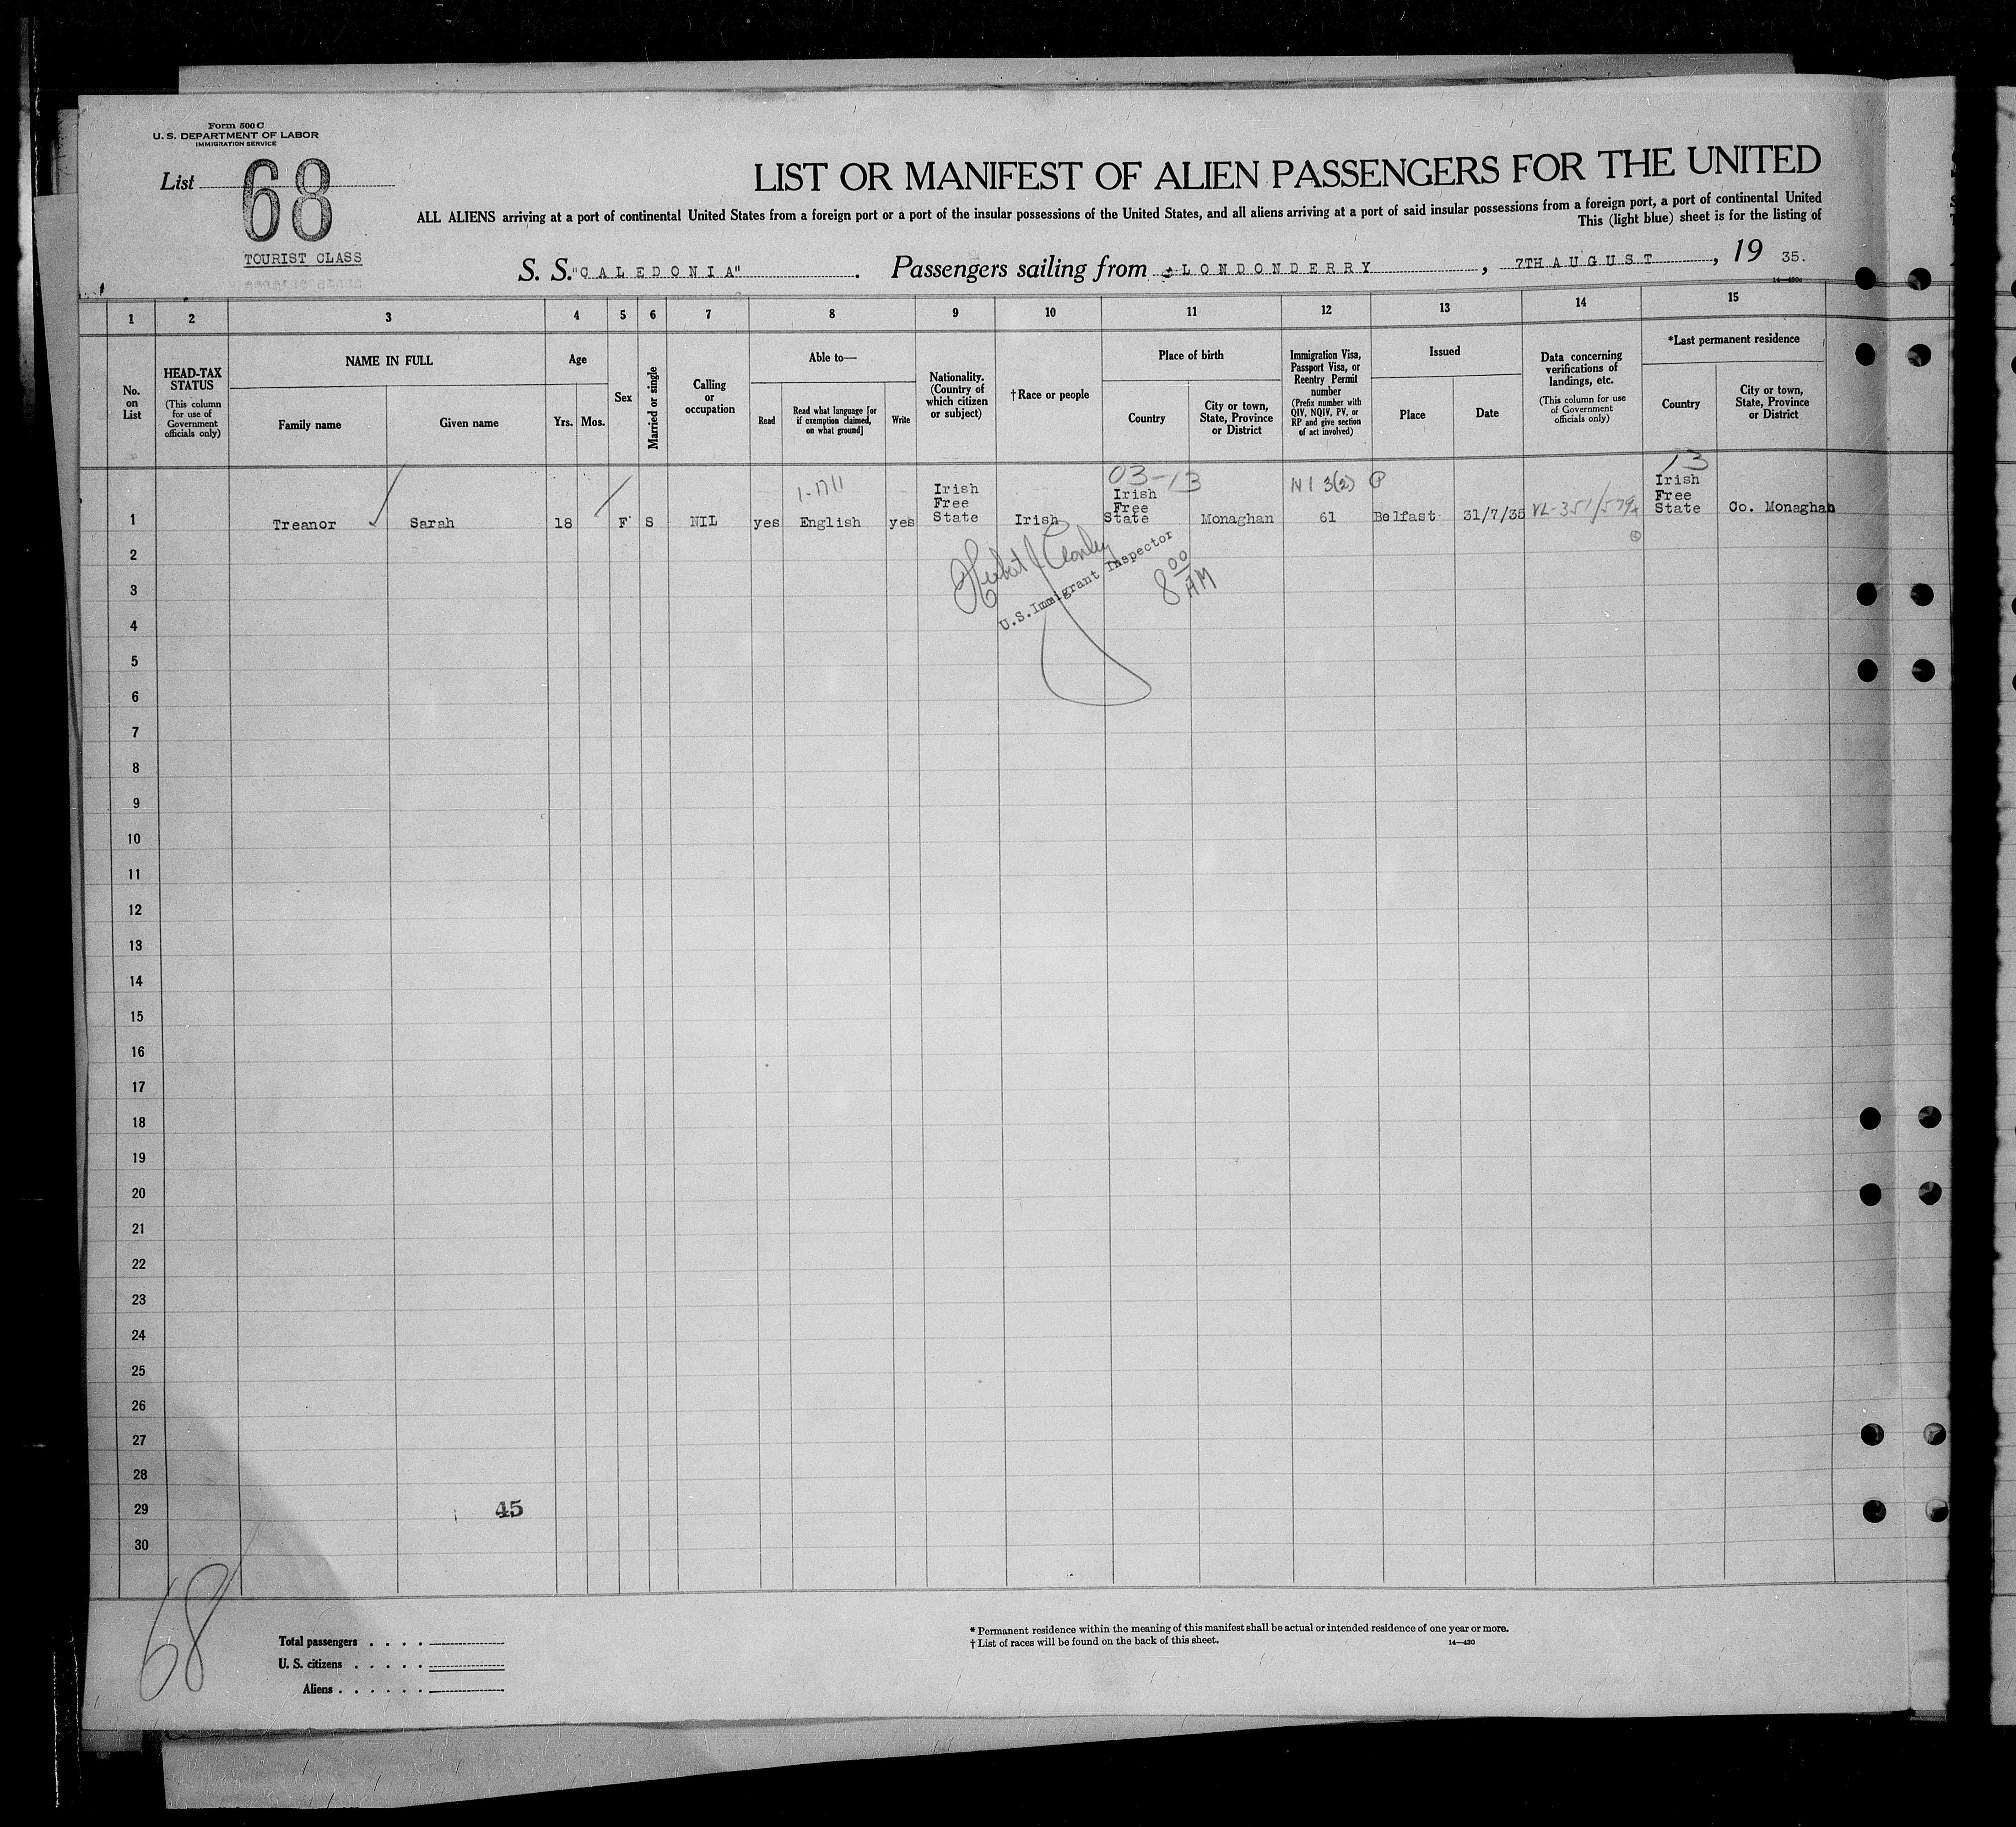 Form 500 C
U. S. DEPARTMENT OF LABOR
IMMIGRATION SERVICE
List 68
TOURIST CLASS
LIST OR MANIFEST OF ALIEN PASSENGERS FOR THE UNITED
ALL ALIENS arriving at a port of continental United States from a foreign port or a port of the insular possessions of the United States, and all aliens arriving at a port of said insular possessions from a foreign port, a port of continental United
This (light blue) sheet is for the listing of
S. S. "CALEDONIA" . Passengers sailing from LONDONDERRY , 7TH AUGUST , 19 35.
1 2 3 4 5 6 7 8 9 10 11 12 13 14 15
No. on List
HEAD-TAX STATUS
(This column for use of Government officials only)
NAME IN FULL
Family name
Given name
Age
Yrs. Mos.
Sex
Married or single
Calling or occupation
Able to—
Read
Read what language [or if exemption claimed, on what ground]
Write
Nationality. (Country of which citizen or subject)
†Race or people
Place of birth
Country
City or town, State, Province or District
Immigration Visa, Passport Visa, or Reentry Permit number
(Prefix number with QIV, NQIV, PV, or RP and give section of act involved)
Issued
Place
Date
Data concerning verifications of landings, etc.
(This column for use of Government officials only)
*Last permanent residence
Country
City or town, State, Province or District
03-13
13
N I 3(2) P
1 Treanor Sarah 18 F S NIL yes English yes Irish Free State Irish Irish Free State Monaghan 61 Belfast 31/7/35 Irish Free State Co. Monaghan
U.S. Immigrant Inspector
8 00 AM
2
3
4
5
6
7
8
9
10
11
12
13
14
15
16
17
18
19
20
21
22
23
24
25
26
27
28
29 45
30
68
Total passengers . . . .
U. S. citizens . . . . .
Aliens . . . . . .
* Permanent residence within the meaning of this manifest shall be actual or intended residence of one year or more.
† List of races will be found on the back of this sheet.
14—430